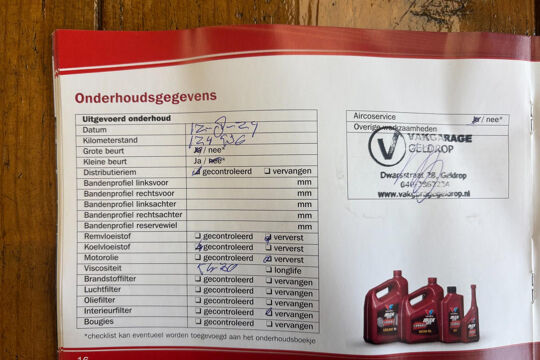 Onderhoudsgegevens
Uitgevoerd onderhoud
Datum 12-8-24
Kilometerstand
Grote beurt ja / nee*
Kleine beurt Ja / nee*
Distributieriem ☑ gecontroleerd ❏ vervangen
Bandenprofiel linksvoor mm
Bandenprofiel rechtsvoor mm
Bandenprofiel linksachter mm
Bandenprofiel rechtsachter mm
Bandenprofiel reservewiel mm
Remvloeistof ❏ gecontroleerd ☑ ververst
Koelvloeistof ☑ gecontroleerd ❏ ververst
Motorolie ❏ gecontroleerd ☑ ververst
Viscositeit 5w30 ❏ longlife
Brandstoffilter ❏ gecontroleerd ❏ vervangen
Luchtfilter ❏ gecontroleerd ❏ vervangen
Oliefilter ❏ gecontroleerd ❏ vervangen
Interieurfilter ❏ gecontroleerd ☑ vervangen
Bougies ❏ gecontroleerd ❏ vervangen
*checklist kan eventueel worden toegevoegd aan het onderhoudsboekje
16
Aircoservice ja / nee*
Overige werkzaamheden
V VAKGARAGE
GELDROP
Dwarsstraat 78, Geldrop
www.vakgaragegeldrop.nl